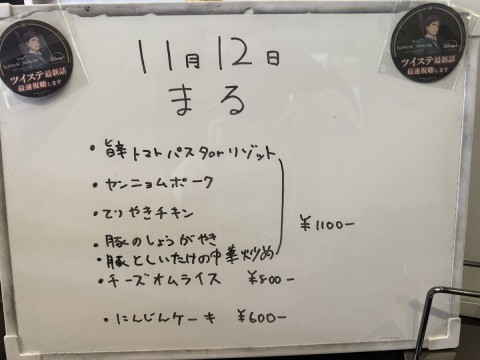 11月12日
まる
・旨辛トマトパスタorリゾット
・ヤンニョムポーク
・てりやきチキン
・豚のしょうがやき
・豚としいたけの中華炒め
¥1100-
・チーズオムライス ¥800-
・にんじんケーキ ¥600-
Disney+
ツイステ最新話
最速視聴します
Disney+
ツイステ最新話
最速視聴します